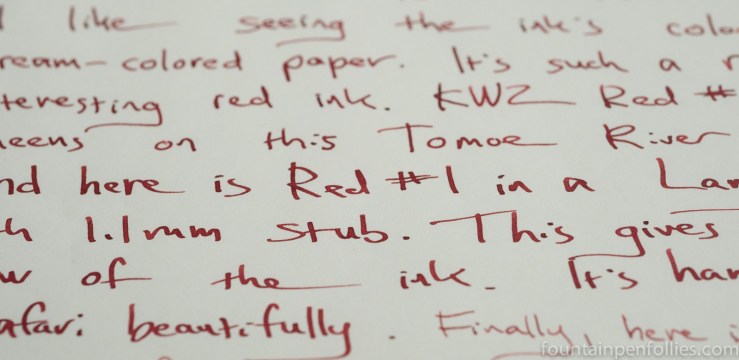 I like seeing the ink's colo
ream-colored paper. It's such a r
teresting red ink. KWZ Red #
heens on this Tomoe River
nd here is Red #1 in a Lam
h 1.1mm stub. This gives
w of the ink. It's har
afari beautifully. Finally, here i
fountainpenfollies.com